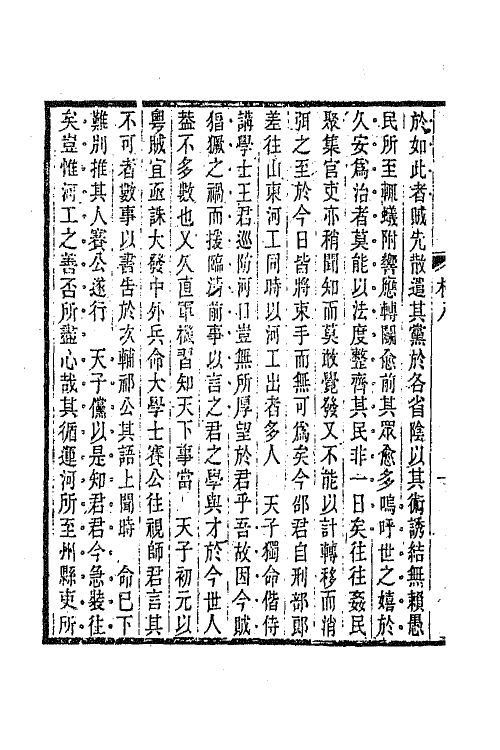 於如此者賊先散遣其黨於各省陰以其術誘結無賴愚
民所至輒蟻附響應轉鬬愈前其眾愈多嗚呼世之嬉於
久安為治者莫能以法度整齊其民非一日矣往往姦民
聚集官吏亦稍聞知而莫敢覺發又不能以計轉移而消
弭之至於今日皆將束手而無可為矣今邵君自刑部郎
差往山東河工同時以河工出者多人 天子獨命偕侍
講學士王君巡防河口豈無所厚望於君乎吾故因今賊
猖獗之禍而援臨清前事以言之君之學與才於今世人
葢不多數也又久直軍機習知天下事當 天子初元以
粵賊宜亟誅大發中外兵命大學士賽公往視師君言其
不可者數事以書告於次輔祁公其語上聞時 命已下
難別推其人賽公遂行 天子儻以是知君君今急裝往
矣豈惟河工之善否所盡心哉其循運河所至州縣吏所